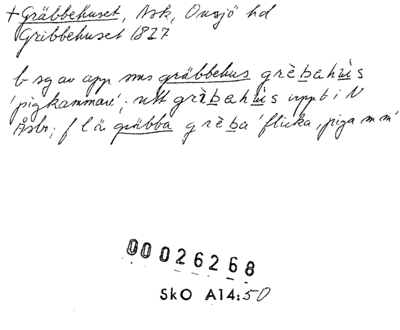 +Gräbbehuset, Ask, Onsjö hd
Gribbehuset 1827
b sg av app sms gräbbehus grèbahùs
'pigkammare'; utt grèbahùs uppt i N
Åsbo; f l ä gräbba grèba 'flicka, piga mm'
00026268
SkO A14:50